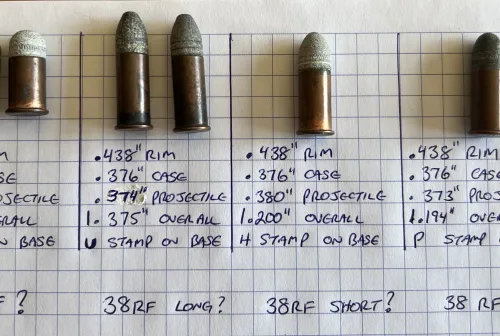 ON BASE
?
.438" RIM
.376" CASE
.374" PROJECTILE
1.375" OVERALL
U STAMP ON BASE
38RF LONG?
.438" RIM
.376" CASE
.380" PROJECTILE
1.200" OVERALL
H STAMP ON BASE
38RF SHORT?
.438" RIM
.376"
.373"
1.194"
P STAMP
38 RF